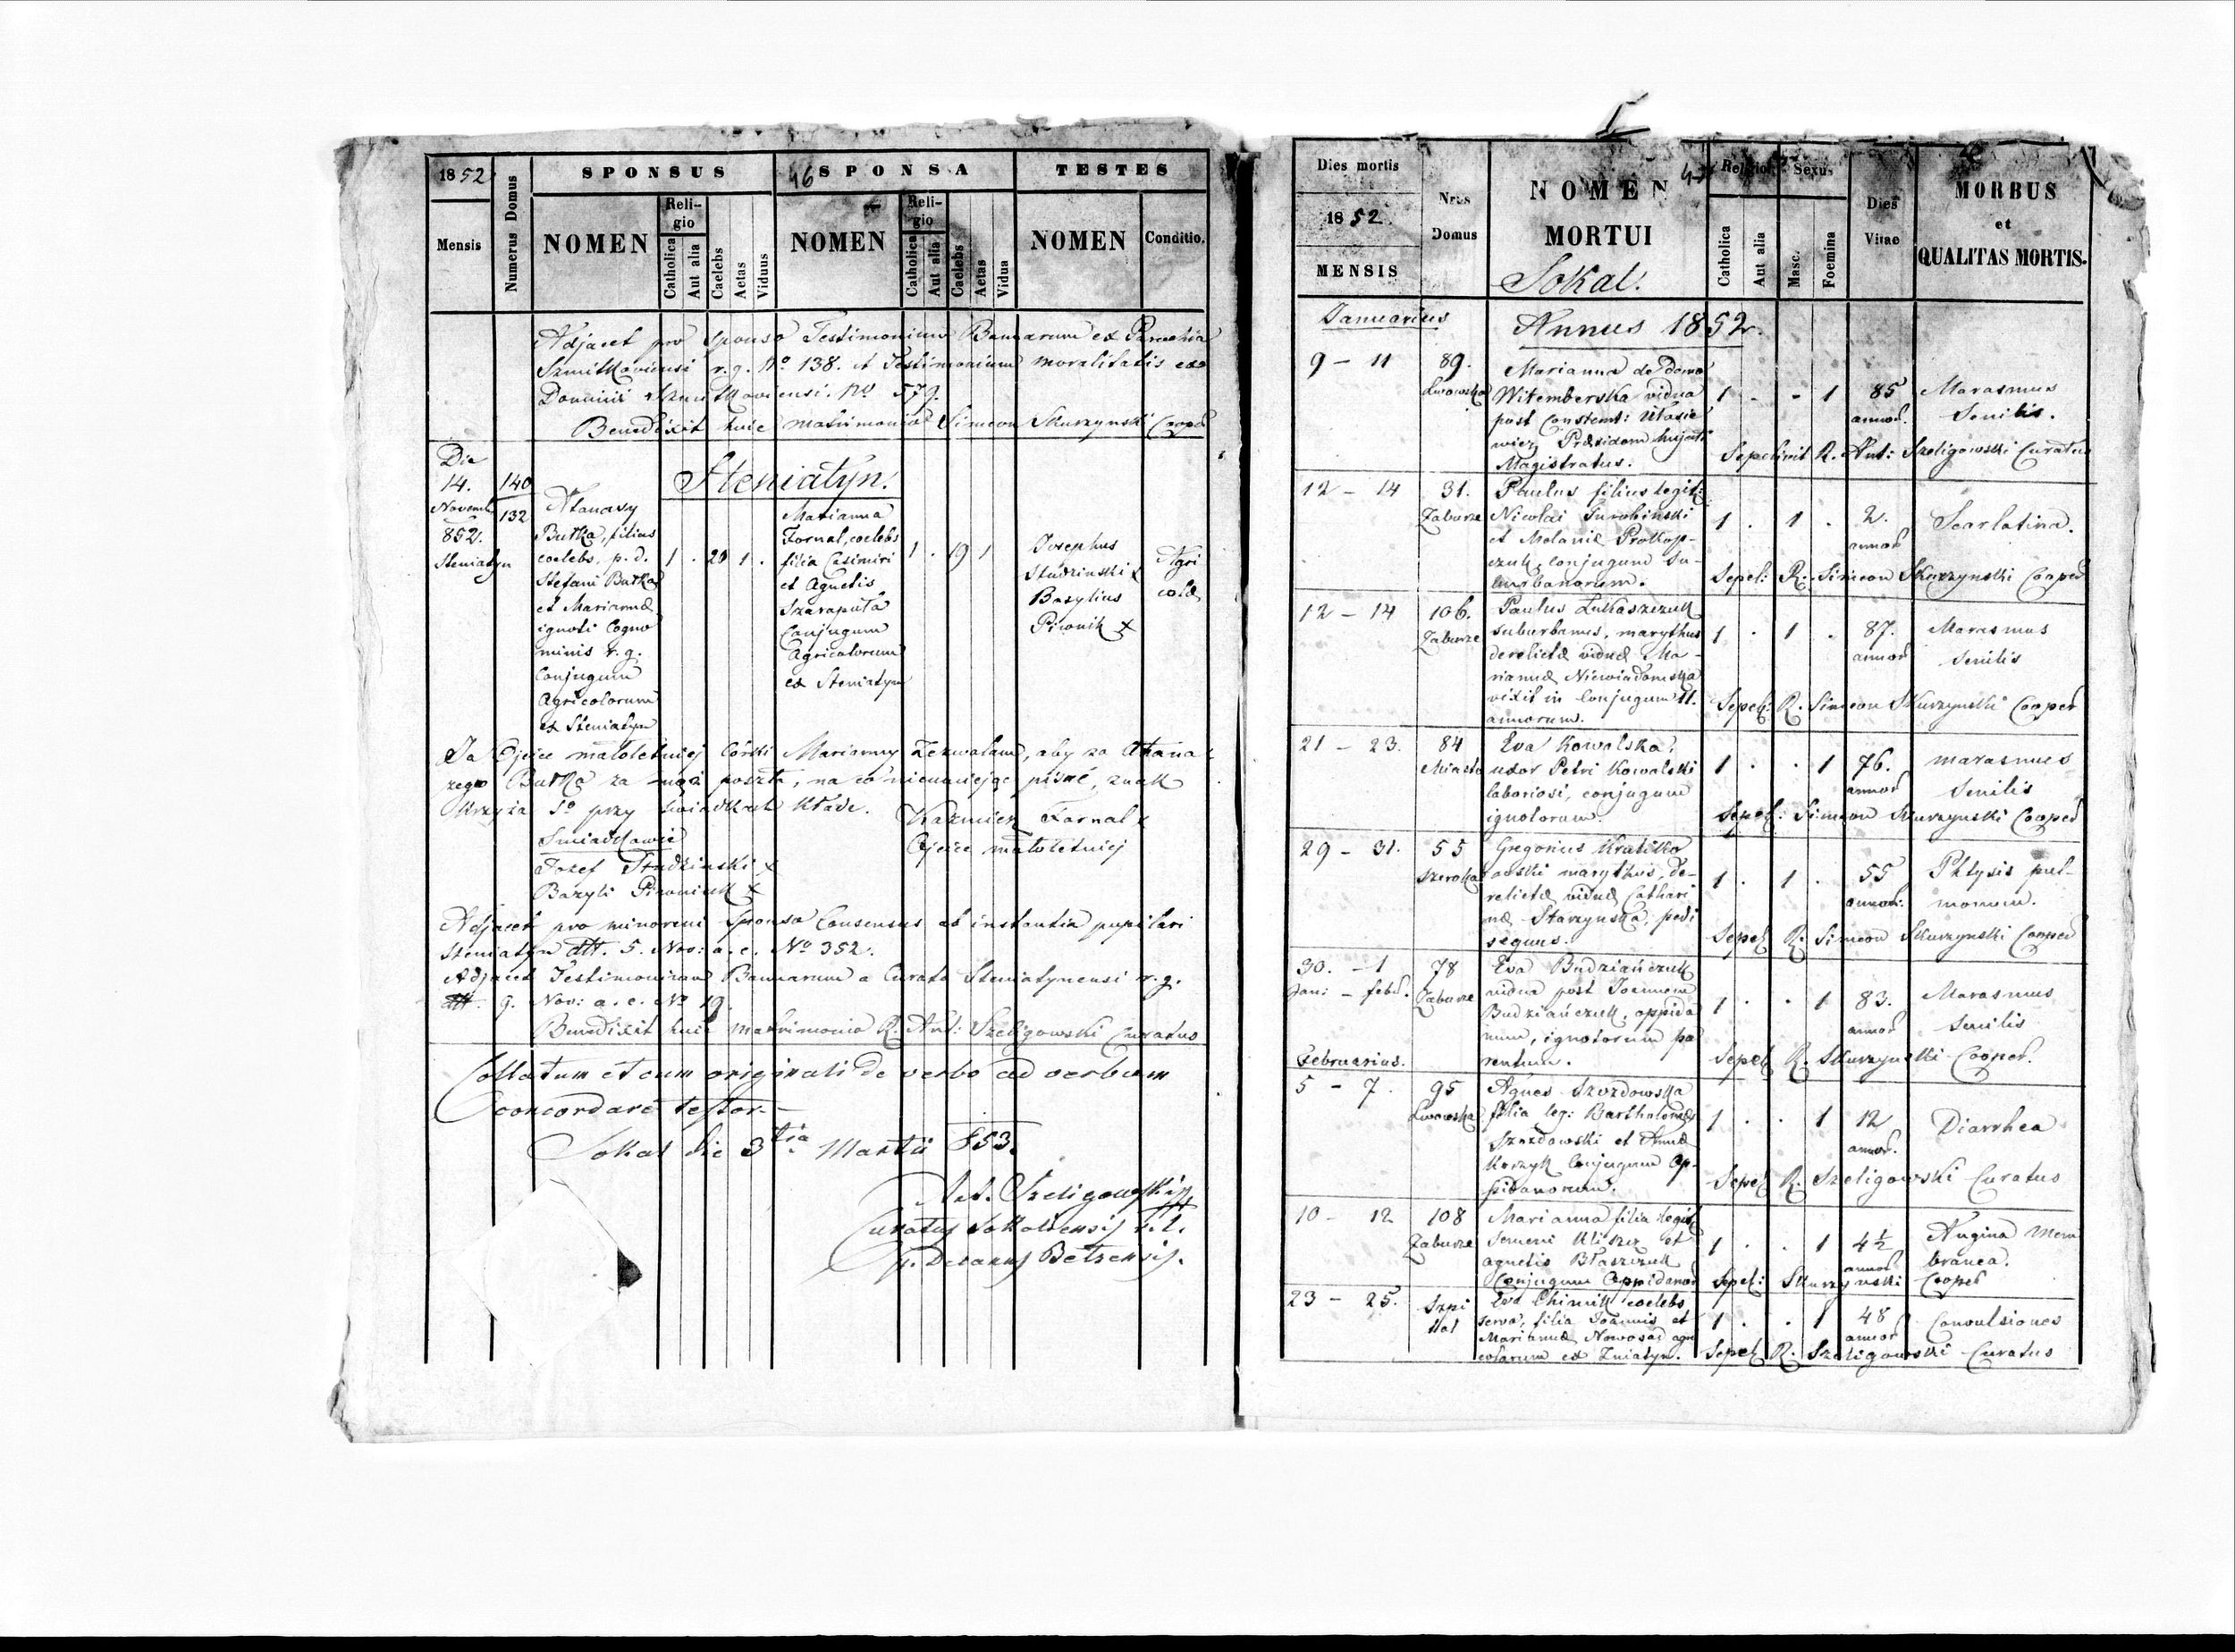 1852
Mensis
Numerus Domus
SPONSUS
NOMEN
Religio
Catholica
Aut alia
Caelebs
Aetas
Viduus
46
SPONSA
NOMEN
Religio
Catholica
Aut alia
Caelebs
Aetas
Vidua
TESTES
NOMEN
Conditio.
Adjacet pro Sponso Testimonium Bannorum ex Parochia
r. g. No 138. et Testimonium moralitatis ex
Dominii No 579.
Benedixit huic matrimonio Simeon Skurzynski Cooper
Steniatyn.
Die
14.
Novemb
852.
Steniatyn
140
132
Atanasy
Butka, filius
coelebs, p. d.
Stefani Butka
et Mariannae
ignoti Cogno
minis r. g.
Conjugum
Agricolarum
ex Steniatyn
1 . 20 1 .
Marianna
Fornal, coelebs
filia Casimiri
et Agnetis
Szarapata
Conjugum
Agricolarum
ex Steniatyn
1 . 19 1
Josephus
Studzinski x
Bazylius
Piwnik x
Agri
colae
Ja Ojciec małoletniej Córki Marianny Zezwalam, aby za Atana
zego Butka za mąż poszła, na co nieumiejąc pisać, znak
Krzyża So przy świadkach kładę.
Kazmierz Fornal x
Ojciec małoletniej
Swiadkowie
Jozef Studzinski x
Bazyli Piwniuk x
Adjacet pro minoreni Sponsa Consensus ab instantia pupilari
Steniatyn dtt. 5. Nov: a. c. No 352.
Adjacet Testimonium Bannorum a Curato Steniatynensi r. g.
dtt. 9. Nov: a. c. No 19.
Benedixit huic matrimonio R. Ant: Szeligowski Curatus
Collatum et cum originali de verbo ad verbum
concordare testor.
Sokal die 3tia Martii 853.
Ant. Szeligowski
Curatus Sokaliensis r. l.
Decanus Belzensis.
Dies mortis
1852
MENSIS
Nrus
Domus
NOMEN
MORTUI
Sokal.
47
Religio
Catholica
Aut alia
Sexus
Masc.
Foemina
Dies
Vitae
MORBUS
et
QUALITAS MORTIS.
Januarius
Annus 1852.
9 – 11
89.
Lwowska
Marianna de domo
Witemberska vidua
post Constant: Utasie
wicz Praesidem hujati
Magistratus.
1 . - 1
85
annor
Marasmus
Senilis.
Sepelivit R. Ant: Szeligowski Curatus
12 – 14
31.
Zaburze
Paulus filius legit:
Nicolai Turobinski
et Melaniae Prokop-
czuk, conjugum Su-
burbanorum.
1 . 1 .
2.
annor
Scarlatina.
Sepel: R. Simeon Skurzynski Cooper
12 – 14
106.
Zaburze
Paulus Łukaszczuk
suburbanus, marythus
derelictae viduae Ma-
riannae Niewiadomska
vixit in Conjugum 11.
annorum.
1 . 1 .
87.
annor
Marasmus
Senilis
Sepel: R. Simeon Skurzynski Cooper
21 – 23.
84
Miasto
Eva Kowalska,
uxor Petri Kowalski
laboriosi, conjugum
ignotorum
1 . . 1
76.
annor
marasmus
Senilis
Sepel: Simeon Skurzynski Cooper
29 – 31.
55
Szeroka
Gregorius Kratiko
wski marythus, de-
relictae viduae Cathari
nae Starzynska, pedi
sequus.
1 . 1 .
55
annor:
Phtysis pul-
monum.
Sepel R. Simeon Skurzynski Cooper
30. – 1
Jan: – febr.
78
Zaburze
Eva Budziańczuk
vidua post Joannem
Budziańczuk, oppida
num, ignotorum pa
rentum.
1 . . 1
83.
annor
Marasmus
Senilis
Sepel R. Skurzynski Cooper.
Februarius.
5 – 7.
95
Lwowska
Agnes Szozdowska
filia leg: Bartholomei
Szozdowski et Annae
Korzyk Conjugum Op-
pidanorum.
1 . . 1
12
annor.
Diarrhea
Sepel R. Szeligowski Curatus
10 – 12
108
Zaburze
Marianna filia legit
Semeni Kliszcz et
Agnetis Błaszczuk
Conjugum Oppidanor
1 . . 1
4½
annor
Angina Mem
branea.
Sepel: Skurzynski Cooper
23 – 25.
Szpi
tal
Eva Chimik coelebs
serva, filia Joannis et
Mariannae Nowosad agri
colarum ex Zniatyn.
1 . . 1
48
annor
Convulsiones
Sepel R. Szeligowski Curatus